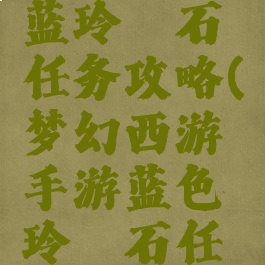 蓝玲 石
任务攻略(
梦幻西游
手游蓝色
玲 石任